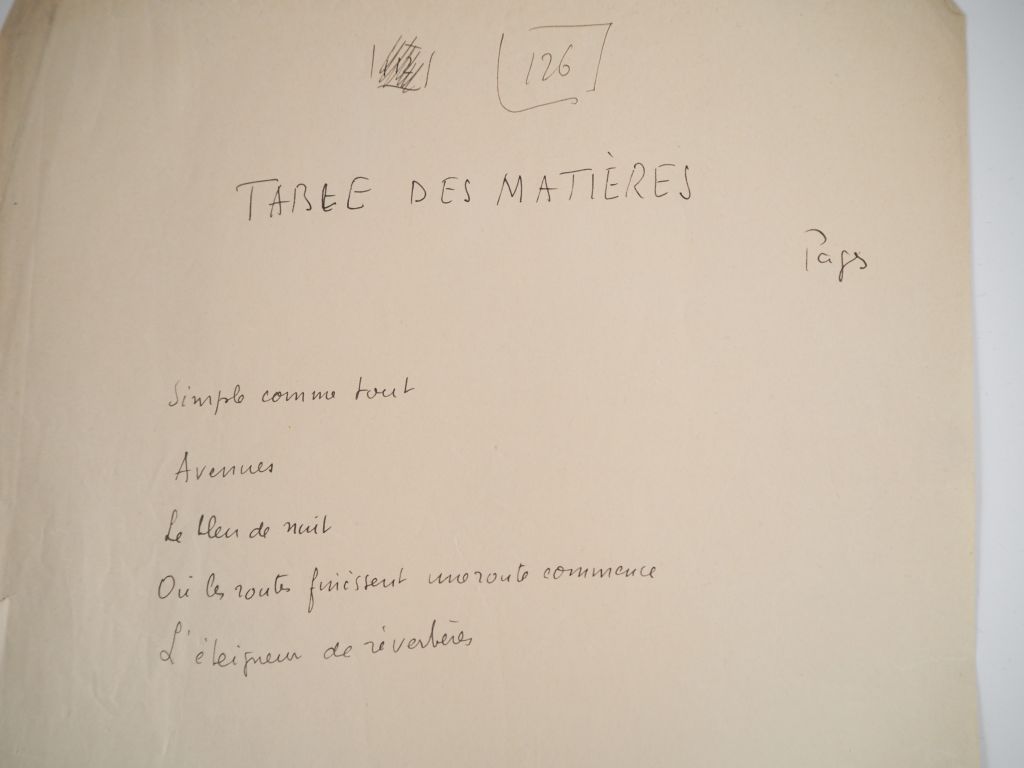 126
TABLE DES MATIÈRES
Pages
Simple comme tout
Avenues
Le bleu de nuit
Où les routes finissent une route commence
L'éteigneur de réverbères